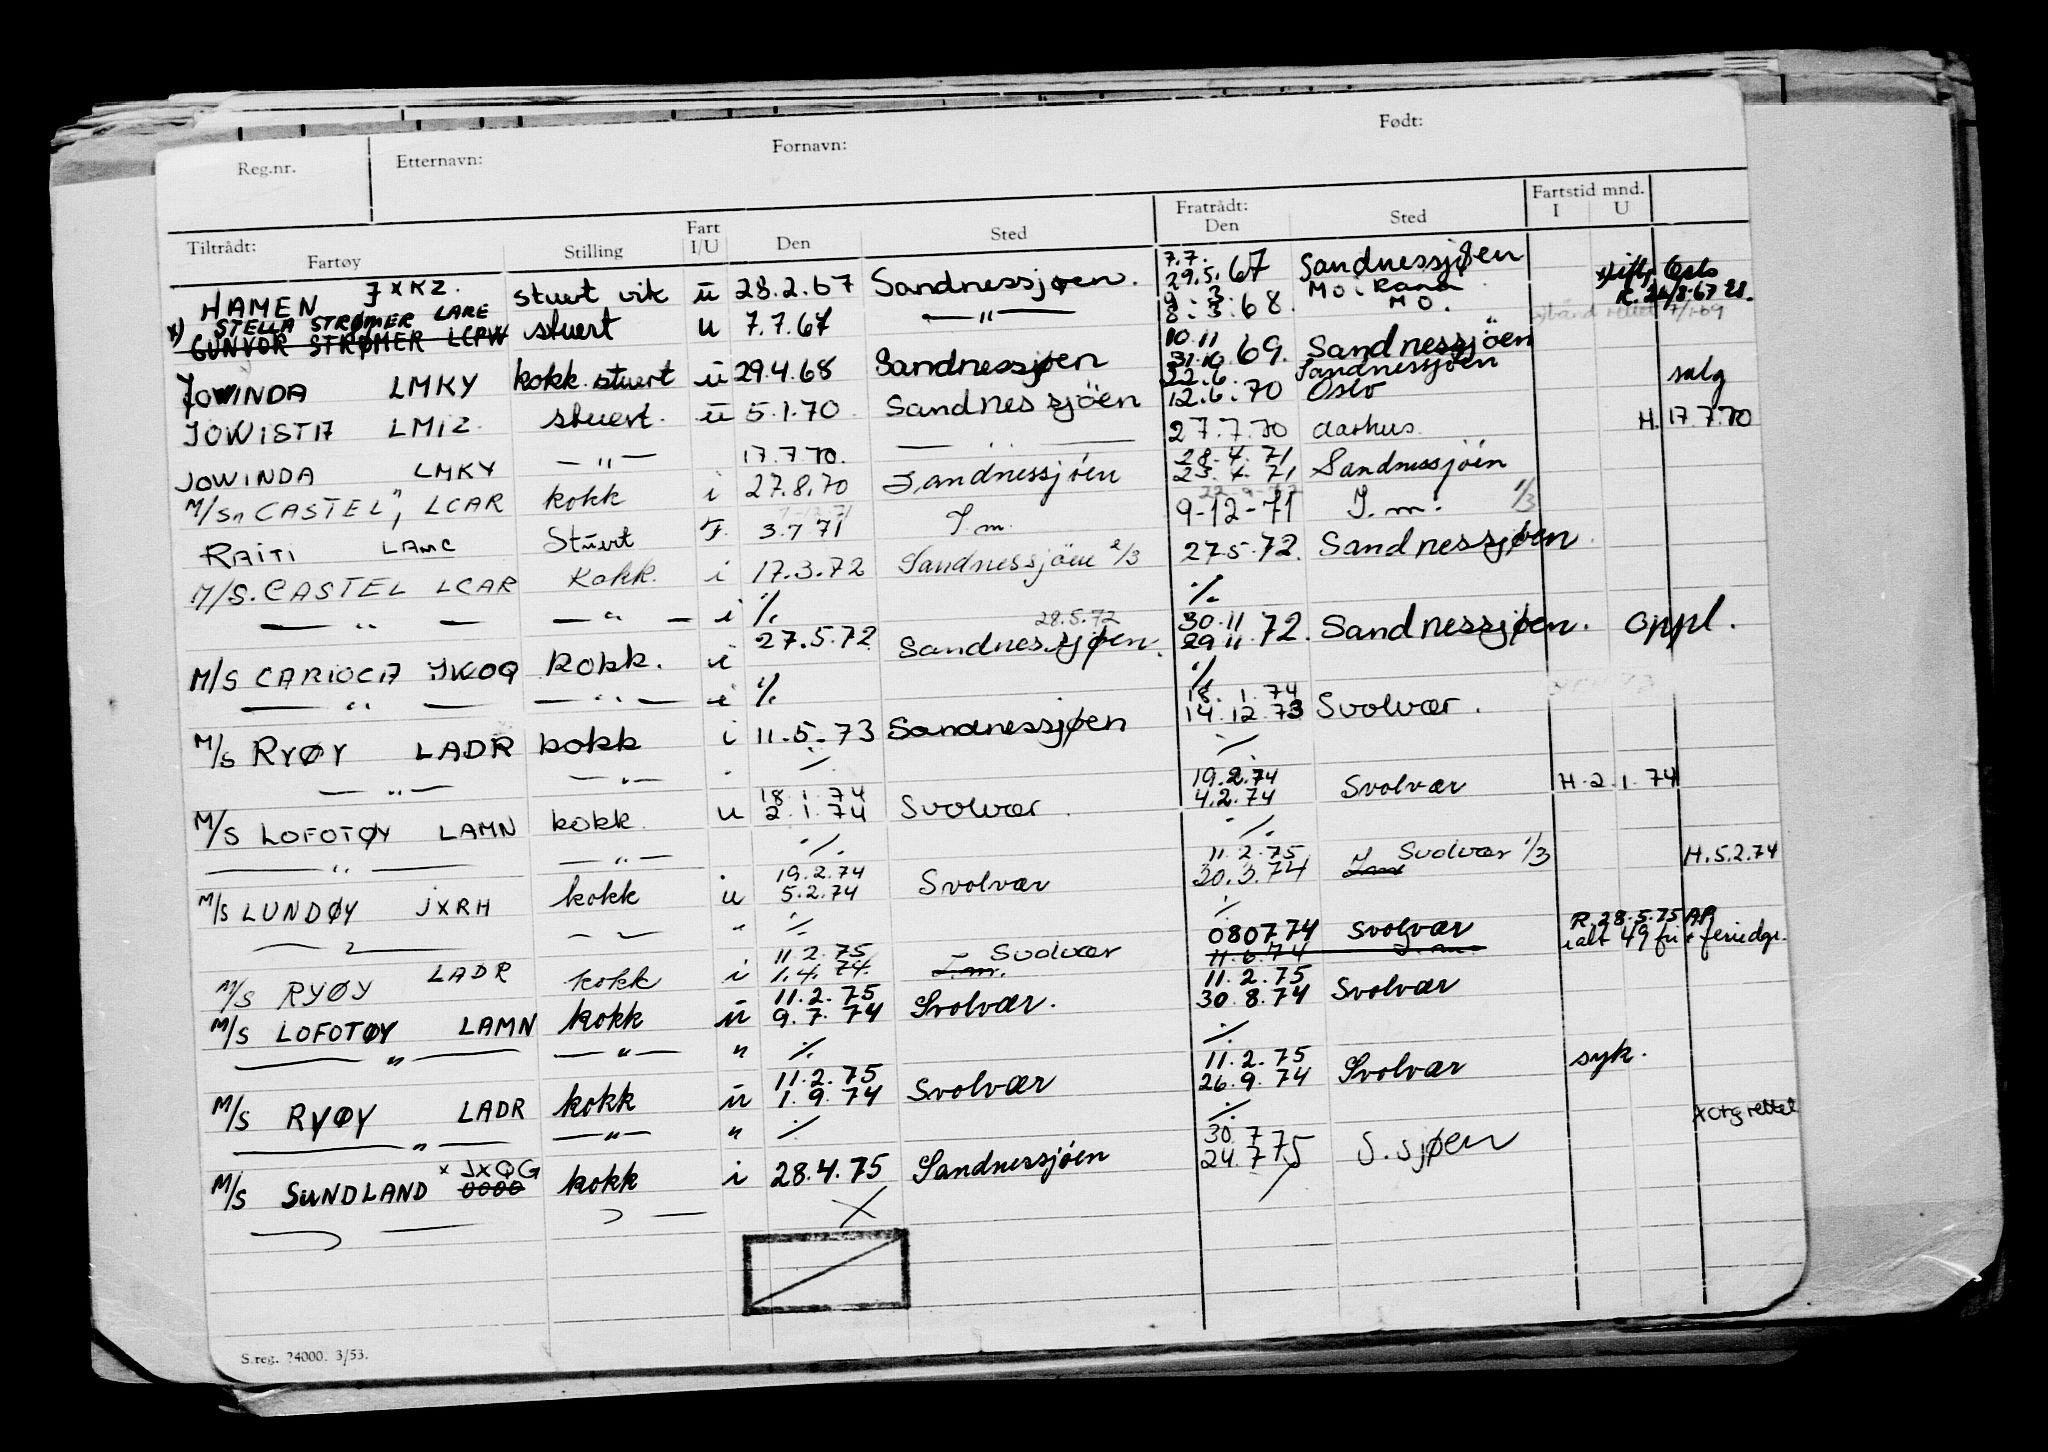 Reg.nr. Etternavn: Fornavn: Født:
Tiltrådt: Fratrådt: Fartstid mnd.
Fartøy Stilling Fart I/U Den Sted Den Sted I U
HAMEN JXKZ. stuert vik ū 28.2.67 Sandnessjøen. 7.7. 29.5.67 Sandnessjøen
x) STELLA STRØMER LARE Mo i Rana
GUNVOR STRØMER LCPW stuert u 7.7.67 — " — 8.3.68. MO.
JOWINDA LMKY kokk stuert ū 29.4.68 Sandnessjøen 10.11 31.10.69. Sandnessjöen
JOWISTA LMIZ. stuert. ū 5.1.70 Sandnessjöen 22.6. 12.6.70 Sandnessjöen Oslo salg
JOWINDA LMKY — " — 17.7.70. — " — 27.7.70 Aarhus. H. 17.7.70
M/S "CASTEL", LCAR kokk i 27.8.70 Sandnessjöen 28.4.71 23.4.71 Sandnessjöen
RAITI LAMC Stuert F. 3.7 71 S m. 9-12-71 S. m. 1/3
M/S. CASTEL LCAR Kokk. i 17.3.72 Sandnessjöen 2/3 27.5.72. Sandnessjøen.
— " — — " — i ./. ./.
28.5.72
M/S CARIOCA JKOQ kokk. i 27.5.72 Sandnessjøen. 30.11 29.11.72. Sandnessjøen. oppl.
— " — — " — i ./. ./.
M/S RYØY LADR kokk i 11.5.73 Sandnessjøen 18.1.74 14.12.73 Svolvær.
— " — — " — ./. ./.
M/S LOFOTØY LAMN kokk. u 18.1.74 2.1.74 Svolvær. 19.2.74 4.2.74 Svolvær H.2.1.74
— " — — " — ./. ./.
M/S LUNDØY JXRH kokk u 19.2.74 5.2.74 Svolvær 11.2.75 30.3.74 Svolvær 1/3 S.m H.5.2.74
— " — — " — " ./. ./.
M/S RYØY LADR kokk i 11.2.75 1.4.74. Svolvær S.m. 080774 11.6.74 Svolvær S.m. R.28.5.75 AP ialt 49 fri + feriedgr.
M/S LOFOTØY LAMN kokk ū 11.2.75 9.7.74 Svolvær. 11.2.75 30.8.74 Svolvær
— " — — " — " ./. ./.
M/S RYØY LADR kokk ū 11.2.75 1.9.74 Svolvær 11.2.75 26.9.74 Svolvær syk.
— " — — " — " ./. ./.
M/S SUNDLAND x JXQG 0000 kokk i 28.4.75 Sandnessjöen 30.7 24.775 S.sjøen x ctg rettet
S.reg. 24000. 3/53.